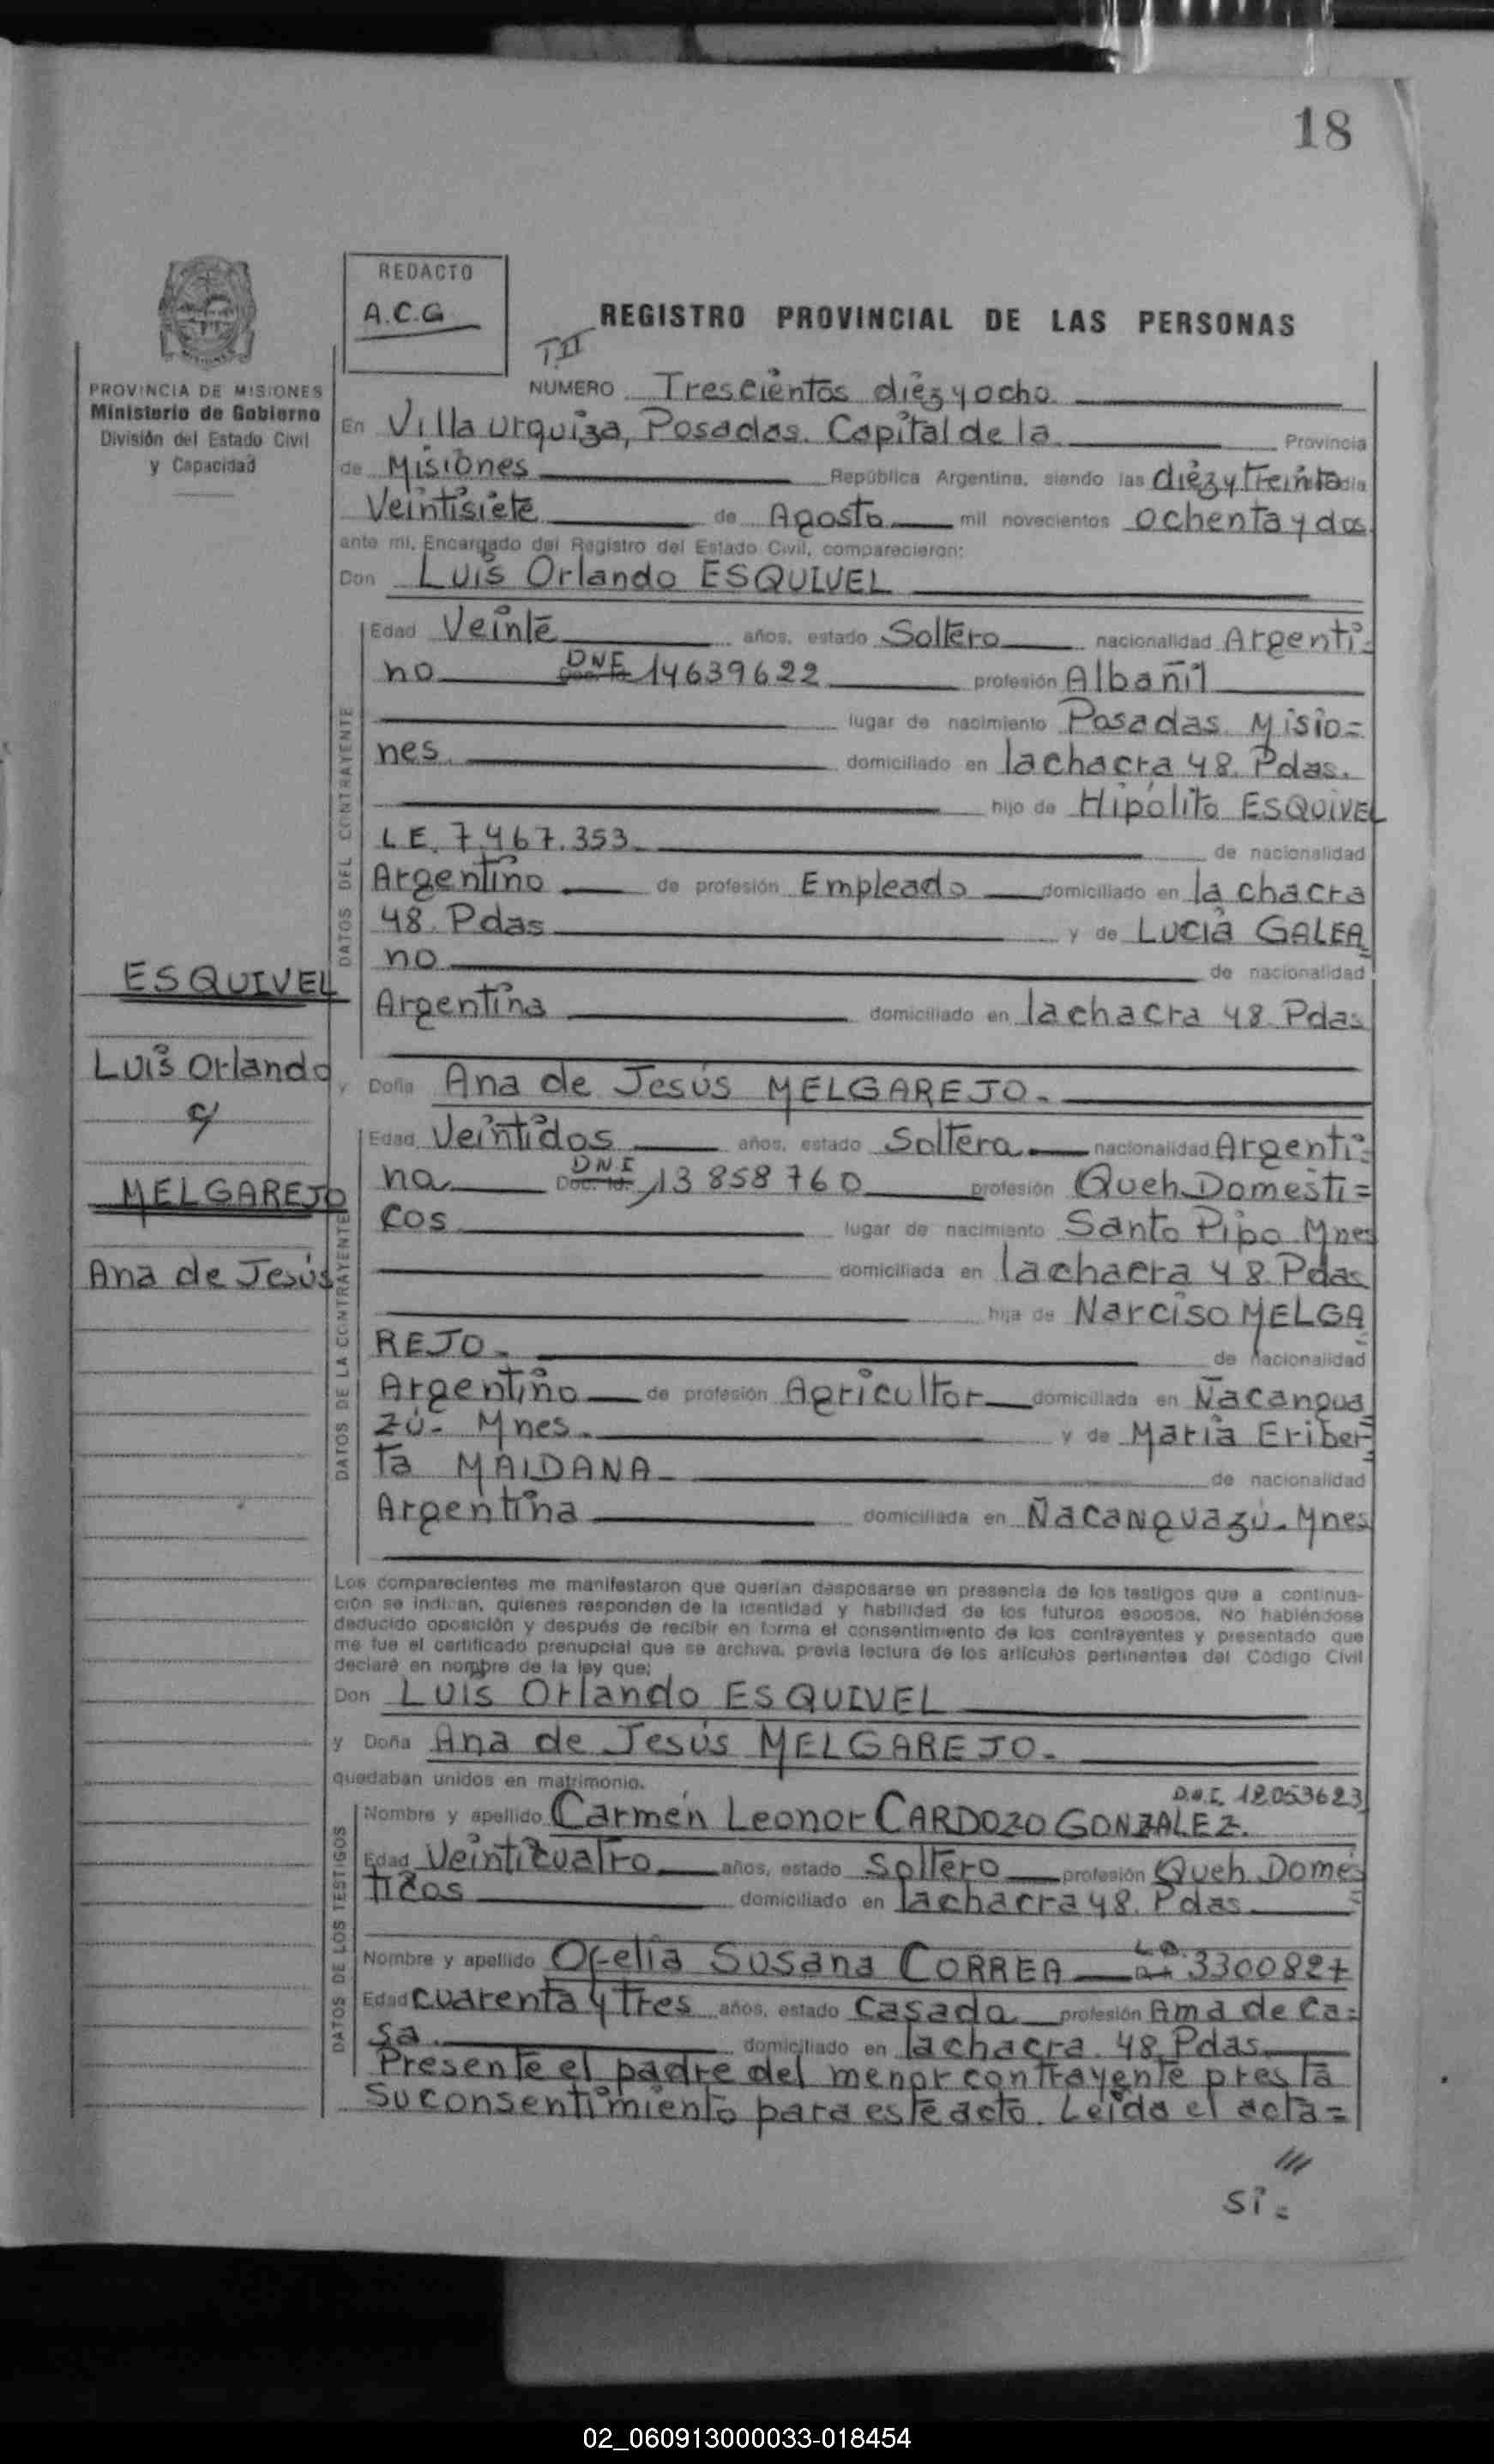 18
REDACTO
A.C.G
REGISTRO PROVINCIAL DE LAS PERSONAS
T.II
PROVINCIA DE MISIONES
Ministerio de Gobierno
División del Estado Civil
y Capacidad
NUMERO Trescientos diez y ocho
En Villa Urquiza, Posadas. Capital de la Provincia
de Misiones República Argentina, siendo las diez y treinta día
Veintisiete de Agosto mil novecientos ochenta y dos
ante mi, Encargado del Registro del Estado Civil, comparecieron:
Don Luis Orlando ESQUIVEL
DATOS DEL CONTRAYENTE
Edad Veinte años, estado Soltero nacionalidad Argenti=
no DNE 14639622 profesión Albañil
lugar de nacimiento Posadas. Misio=
nes. domiciliado en la chacra 48. Pdas.
hijo de Hipólito ESQUIVEL
L E. 7.467.353 de nacionalidad
Argentino de profesión Empleado domiciliado en la chacra
48. Pdas y de Lucia GALEA
no de nacionalidad
Argentina domiciliado en la chacra 48. Pdas
ESQUIVEL
Luis Orlando
c/
MELGAREJO
Ana de Jesús
y Doña Ana de Jesús MELGAREJO.
DATOS DE LA CONTRAYENTE
Edad Veintidos años, estado Soltera nacionalidad Argenti=
na DNI Doc. Id. 13 858 760 profesión Queh. Domesti=
cos lugar de nacimiento Santo Pipo Mnes
domiciliada en la chacra 48. Pdas
hija de Narciso MELGA
REJO. de nacionalidad
Argentino de profesión Agricultor domiciliada en Ñacangua
zú. Mnes. y de Maria Eriber=
ta MAIDANA de nacionalidad
Argentina domiciliada en Ñacanguazú. Mnes
Los comparecientes me manifestaron que querían desposarse en presencia de los testigos que a continua-
ción se indican, quienes responden de la identidad y habilidad de los futuros esposos. No habiéndose
deducido oposición y después de recibir en forma el consentimiento de los contrayentes y presentado que
me fue el certificado prenupcial que se archiva, previa lectura de los artículos pertinentes del Código Civil
declaré en nombre de la ley que:
Don Luis Orlando ESQUIVEL
y Doña Ana de Jesús MELGAREJO.
quedaban unidos en matrimonio.
D.N.I. 12053623
DATOS DE LOS TESTIGOS
Nombre y apellido Carmen Leonor CARDOZO GONZALEZ.
Edad Veinticuatro años, estado Soltero profesión Queh. Domés
ticos domiciliado en la chacra 48. Pdas
Nombre y apellido Ofelia Susana CORREA 3300827
Edad cuarenta y tres años, estado Casada profesión Ama de Ca=
sa. domiciliado en la chacra. 48. Pdas.
Presente el padre del menor contrayente presta
su consentimiento para este acto. Leída el acta=
///
si=
02_060913000033-018454